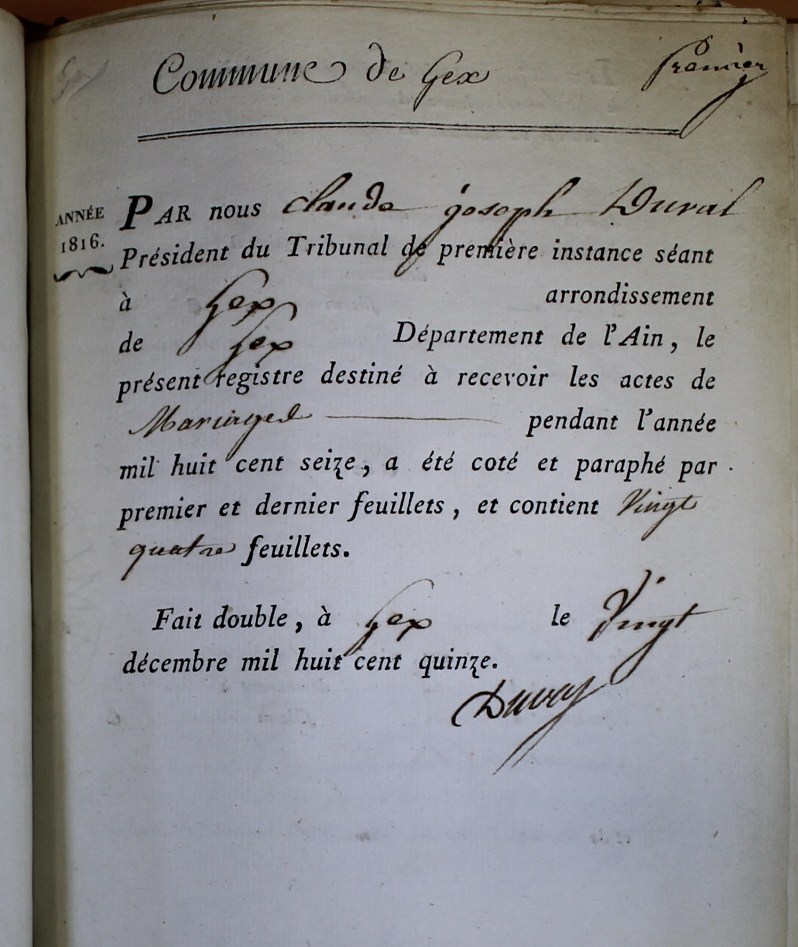 Commune de Gex
Premier
ANNÉE
1816.
PAR nous claude joseph Duval
Président du Tribunal de première instance séant
à Gex arrondissement
de Gex Département de l'Ain, le
présent registre destiné à recevoir les actes de
Mariages pendant l'année
mil huit cent seize, a été coté et paraphé par
premier et dernier feuillets, et contient Vingt
quatre feuillets.
Fait double, à Gex le Vingt
décembre mil huit cent quinze.
Duval